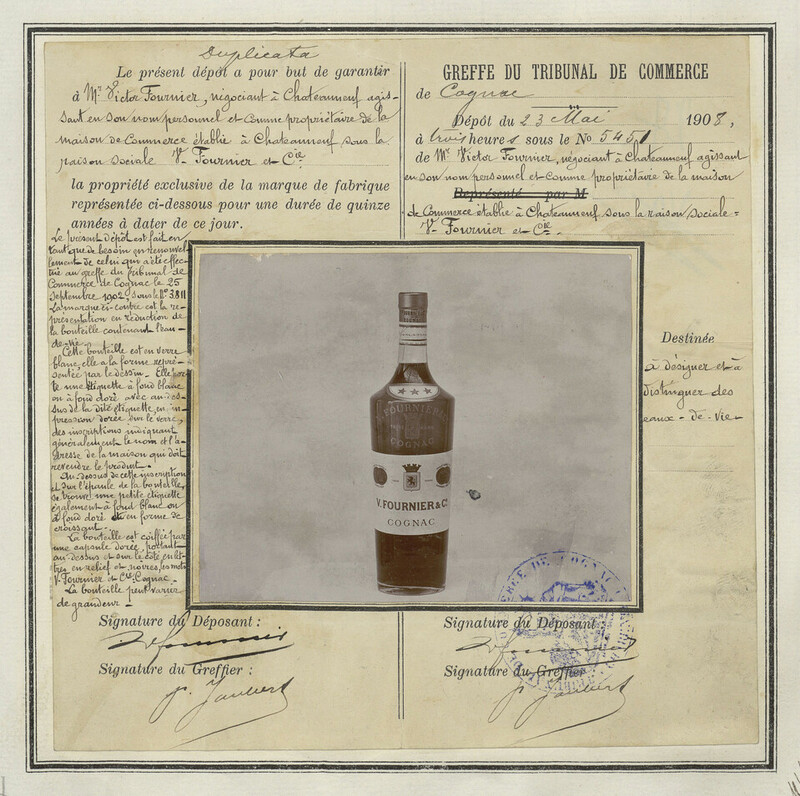 Duplicata
Le présent dépôt a pour but de garantir
à Mr Victor Fournier, négociant à Chateauneuf agis-
sant en son nom personnel et comme propriétaire de la
maison de Commerce établie à Chateauneuf sous la
raison sociale V. Fournier et Cie
la propriété exclusive de la marque de fabrique
représentée ci-dessous pour une durée de quinze
années à dater de ce jour.
Le présent dépôt est fait en
tant que de besoin en renouvel
lement de celui qui a été effec-
tué au greffe du Tribunal de
Commerce de Cognac le 25
Septembre 1902, sous le No 3811
La marque ci-contre est la re-
présentation en réduction de
la bouteille contenant l'eau-
de-vie.
Cette bouteille est en verre
blanc, elle a la forme repré-
sentée par le dessin. Elle por-
te une étiquette à fond blanc
ou à fond doré avec au-des-
sus de la dite étiquette, en im-
pression dorée sur le verre,
des inscriptions indiquant
généralement le nom et l'a-
dresse de la maison qui doit
revendre le produit.
Au-dessus de cette inscription
et sur l'épaule de la bouteille,
se trouve une petite étiquette
également à fond blanc ou
à fond doré en forme de
croissant.
La bouteille est coiffée par
une capsule dorée, portant
au-dessus et sur le côté en let-
tres en relief et noires, les mots
V. Fournier et Cie Cognac.
La bouteille peut varier
de grandeur.
Signature du Déposant :
V. Fournier
Signature du Greffier :
P. Jaubert
GREFFE DU TRIBUNAL DE COMMERCE
de Cognac
Dépôt du 23 Mai 1908,
à trois heures sous le No 5451
de Mr Victor Fournier, négociant à Chateauneuf agissant
en son nom personnel et comme propriétaire de la maison
Représenté par M
de Commerce établie à Chateauneuf sous la raison sociale =
V. Fournier et Cie
Destinée
à désigner et à
distinguer des
eaux-de-vie
FOURNIER
COGNAC
V. FOURNIER & Co
COGNAC
Signature du Déposant :
V. Fournier
Signature du Greffier :
P. Jaubert